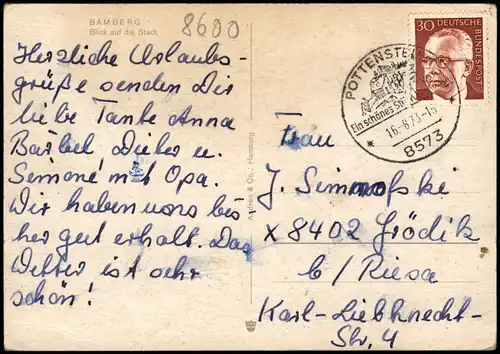 BAMBERG
Blick auf die Stadt
8600
Herzliche Urlaubs-
grüße senden Dir
liebe Tante Anna
Bärbel Dieter u.
Simone mit Opa.
Wir haben uns bis
her gut erholt. Das
Wetter ist sehr
schön!
& Co., Hamburg
30 DEUTSCHE
BUNDESPOST
POTTENSTE
Ein schönes
16.-8.73-15
8573
Frau
J. Simmofski
X 8402 Grödik
b/ Riesa
Karl-Liebknecht-
Str. 4